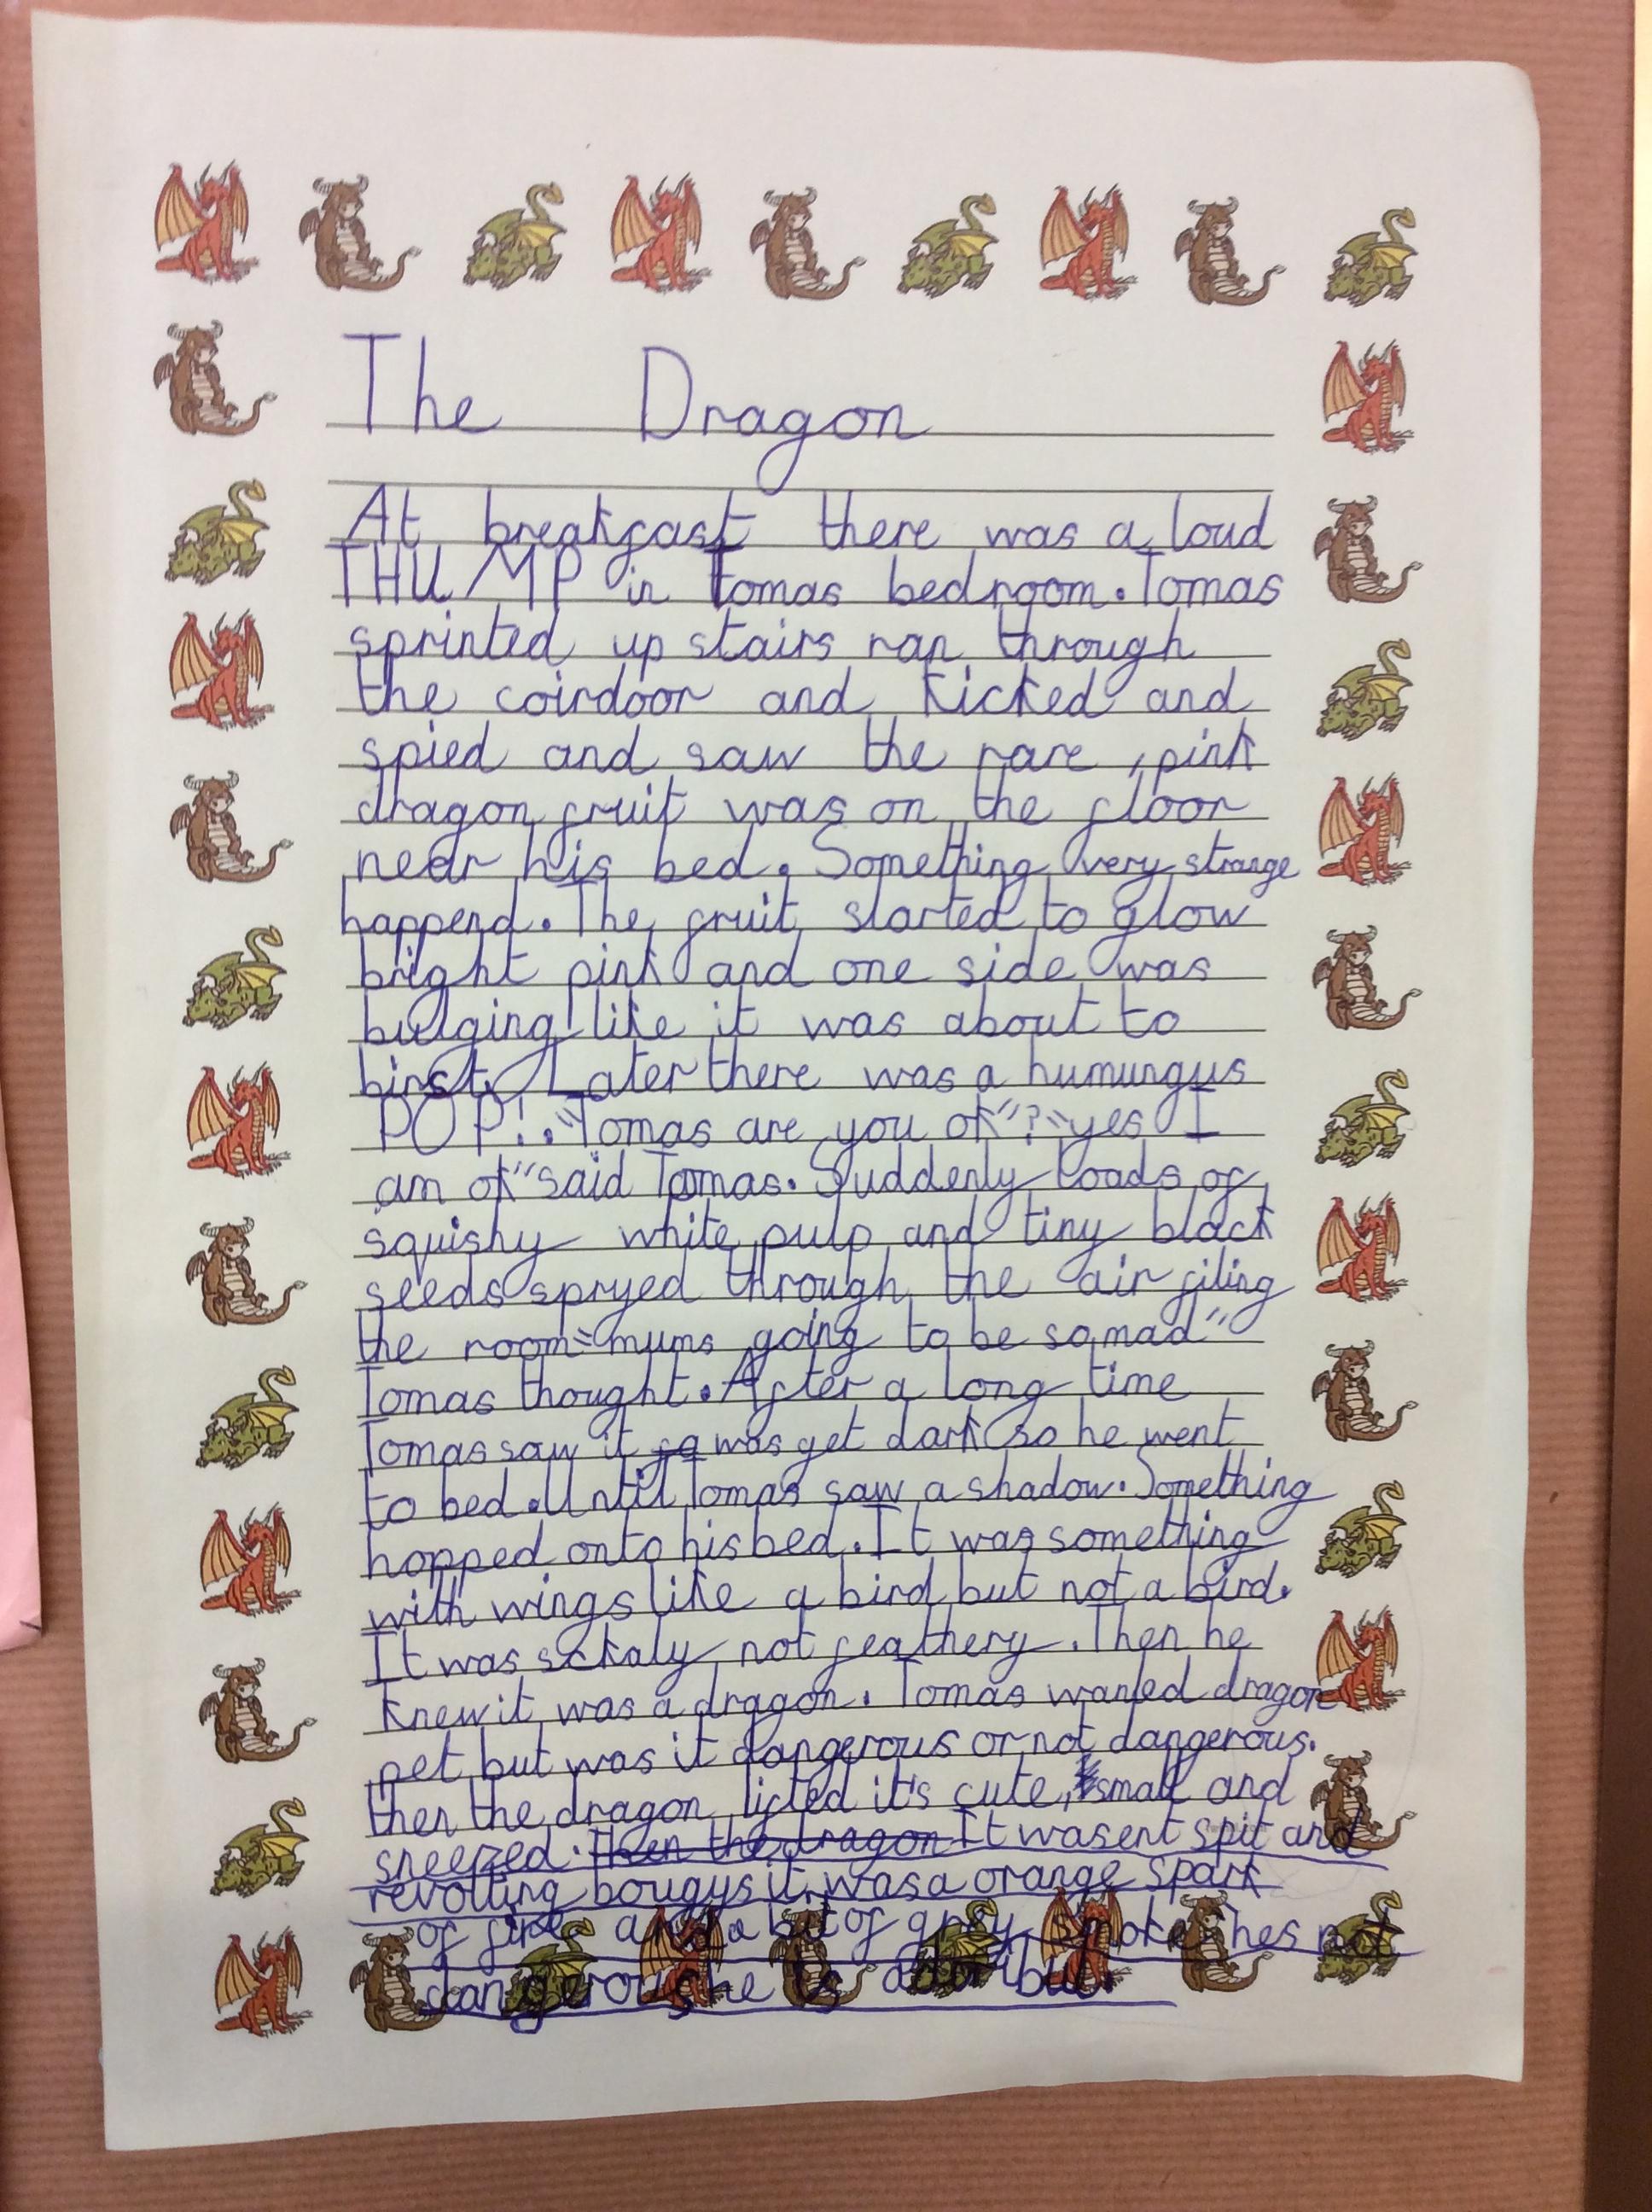 The Dragon
At breakfast there was a loud
THUMP in Tomas bedroom. Tomas
sprinted up stairs ran through
the coirdoor and kicked and
spied and saw the rare, pink
dragon fruit was on the floor
near his bed. Something very strange
happend. The fruit started to glow
bright pink and one side was
bulging like it was about to
birst. Later there was a humungus
POP!. "Tomas are you ok"? "yes I
am ok" said Tomas. Suddenly loads of
squishy white pulp and tiny black
seeds spryed through the air filing
the room "mums going to be so mad"
Tomas thought. After a long time
Tomas saw it was get dark so he went
to bed. Until Tomas saw a shadow. Something
hopped onto his bed. It was something
with wings like a bird but not a bird.
It was sckaly not feathery. Then he
knew it was a dragon. Tomas wanted dragon
pet but was it dangerous or not dangerous.
then the dragon lifted it's cute, small and
sneezed. Then the dragon It wasent spit and
revolting bougys it was a orange spark
of fire and a bit of grey smoke hes not
dangerous he is